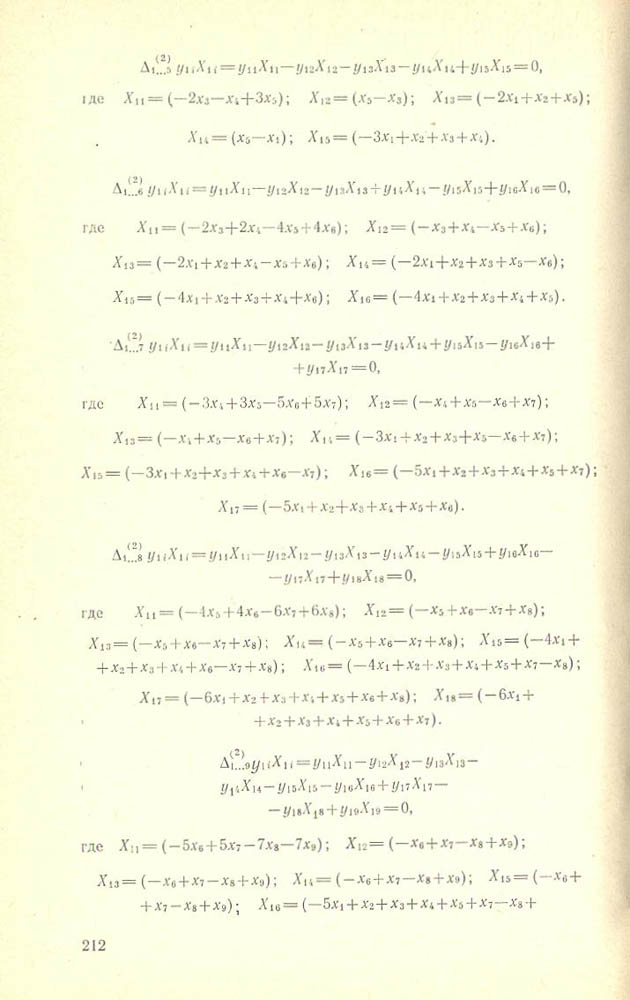 Δ₁...₅⁽²⁾ y₁ᵢX₁ᵢ=y₁₁X₁₁—y₁₂X₁₂—y₁₃X₁₃—y₁₄X₁₄+y₁₅X₁₅=0,
где X₁₁=(—2x₃—x₄+3x₅); X₁₂=(x₅—x₃); X₁₃=(—2x₁+x₂+x₅);
X₁₄=(x₅—x₁); X₁₅=(—3x₁+x₂+x₃+x₄).
Δ₁...₆⁽²⁾ y₁ᵢX₁ᵢ=y₁₁X₁₁—y₁₂X₁₂—y₁₃X₁₃+y₁₄X₁₄—y₁₅X₁₅+y₁₆X₁₆=0,
где X₁₁=(—2x₃+2x₄—4x₅+4x₆); X₁₂=(—x₃+x₄—x₅+x₆);
X₁₃=(—2x₁+x₂+x₄—x₅+x₆); X₁₄=(—2x₁+x₂+x₃+x₅—x₆);
X₁₅=(—4x₁+x₂+x₃+x₄+x₆); X₁₆=(—4x₁+x₂+x₃+x₄+x₅).
Δ₁...₇⁽²⁾ y₁ᵢX₁ᵢ=y₁₁X₁₁—y₁₂X₁₂—y₁₃X₁₃—y₁₄X₁₄+y₁₅X₁₅—y₁₆X₁₆+
+y₁₇X₁₇=0,
где X₁₁=(—3x₄+3x₅—5x₆+5x₇); X₁₂=(—x₄+x₅—x₆+x₇);
X₁₃=(—x₄+x₅—x₆+x₇); X₁₄=(—3x₁+x₂+x₃+x₅—x₆+x₇);
X₁₅=(—3x₁+x₂+x₃+x₄+x₆—x₇); X₁₆=(—5x₁+x₂+x₃+x₄+x₅+x₇);
X₁₇=(—5x₁+x₂+x₃+x₄+x₅+x₆).
Δ₁...₈⁽²⁾ y₁ᵢX₁ᵢ=y₁₁X₁₁—y₁₂X₁₂—y₁₃X₁₃—y₁₄X₁₄—y₁₅X₁₅+y₁₆X₁₆—
—y₁₇X₁₇+y₁₈X₁₈=0,
где X₁₁=(—4x₅+4x₆—6x₇+6x₈); X₁₂=(—x₅+x₆—x₇+x₈);
X₁₃=(—x₅+x₆—x₇+x₈); X₁₄=(—x₅+x₆—x₇+x₈); X₁₅=(—4x₁+
+x₂+x₃+x₄+x₆—x₇+x₈); X₁₆=(—4x₁+x₂+x₃+x₄+x₅+x₇—x₈);
X₁₇=(—6x₁+x₂+x₃+x₄+x₅+x₆+x₈); X₁₈=(—6x₁+
+x₂+x₃+x₄+x₅+x₆+x₇).
Δ₁...₉⁽²⁾y₁ᵢX₁ᵢ=y₁₁X₁₁—y₁₂X₁₂—y₁₃X₁₃—
y₁₄X₁₄—y₁₅X₁₅—y₁₆X₁₆+y₁₇X₁₇—
—y₁₈X₁₈+y₁₉X₁₉=0,
где X₁₁=(—5x₆+5x₇—7x₈—7x₉); X₁₂=(—x₆+x₇—x₈+x₉);
X₁₃=(—x₆+x₇—x₈+x₉); X₁₄=(—x₆+x₇—x₈+x₉); X₁₅=(—x₆+
+x₇—x₈+x₉); X₁₆=(—5x₁+x₂+x₃+x₄+x₅+x₇—x₈+
212